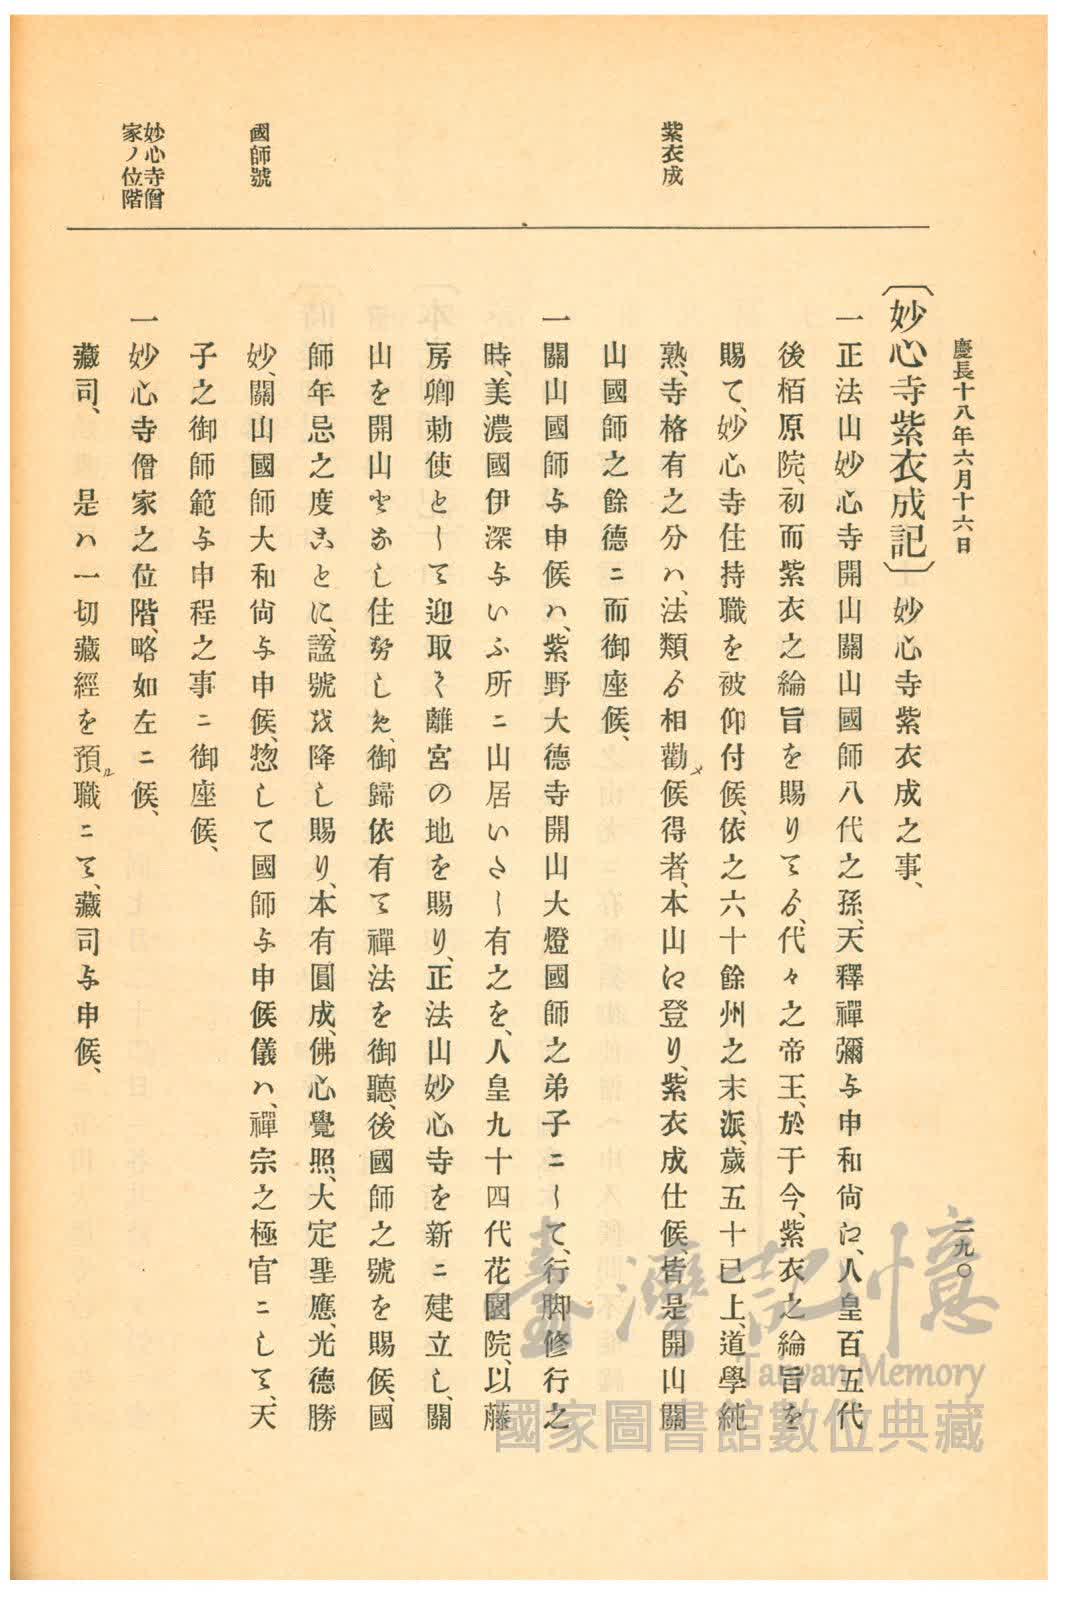 慶長十八年六月十六日
一九〇
紫衣成
國師號
妙心寺僧
家ノ位階
〔妙心寺紫衣成記〕妙心寺紫衣成之事、
一正法山妙心寺開山關山國師八代之孫、天釋禪彌与申和尙に、人皇百五代
後栢原院、初而紫衣之綸旨を賜りてゟ、代々之帝王、於于今、紫衣之綸旨を
賜て、妙心寺住持職を被仰付候、依之六十餘州之末派、歲五十已上、道學純
熟、寺格有之分ハ、法類ゟ相勸メ候得者、本山に登り、紫衣成仕候、皆是開山關
山國師之餘德ニ而御座候、
一關山國師与申候ハ、紫野大德寺開山大燈國師之弟子ニして、行脚修行之
時、美濃國伊深与いふ所ニ山居いたし有之を、人皇九十四代花園院、以藤
房卿勅使として迎取て離宮の地を賜り、正法山妙心寺を新ニ建立し、關
山を開山となし住勢しむ、御歸依有て禪法を御聽、後國師之號を賜候、國
師年忌之度ことに、謚號を降し賜り、本有圓成、佛心覺照、大定聖應、光德勝
妙、關山國師大和尙与申候、惣して國師与申候儀ハ、禪宗之極官ニして、天
子之御師範与申程之事ニ御座候、
一妙心寺僧家之位階、略如左ニ候、
藏司、　是ハ一切藏經を預ル職ニて、藏司与申候、
臺灣記憶
Taiwan Memory
國家圖書館數位典藏